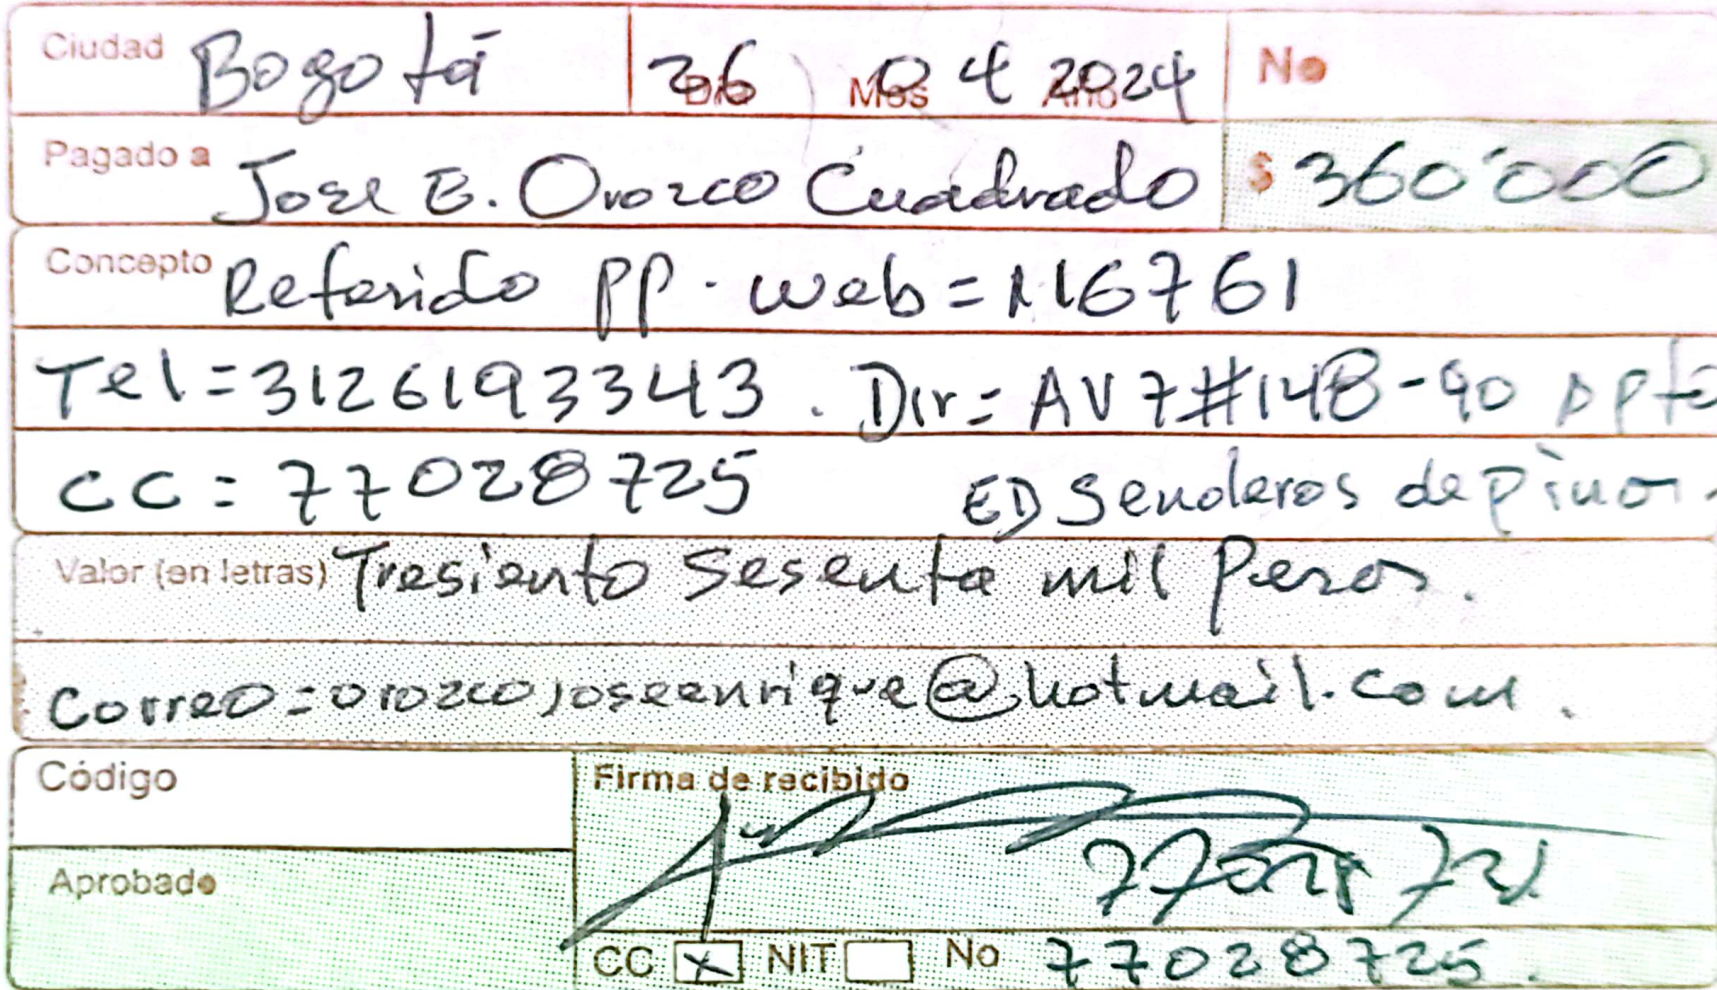 Ciudad Bogotá 26 Mes 04 Año 2024 No
Pagado a Jose E. Orozco Cuadrado $ 360'000
Concepto Referido PP. web = M6761
Tel = 3126193343. Dir = AV 7 #148-90 Apto
CC = 77028725 ED Senderos de Pinos.
Valor (en letras) Tresiento Sesenta mil Pesos.
Correo = orozcojoseenrique@hotmail.com.
Código
Firma de recibido
77028725
Aprobado
CC x NIT No 77028725.